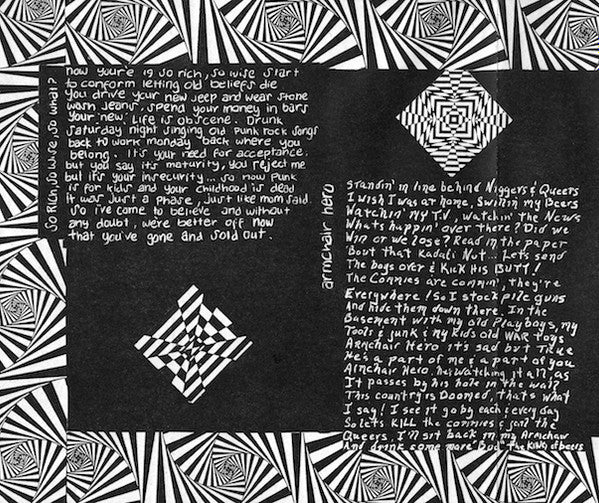 SO RICH, SO WISE, SO WHAT?
now you're 19 so rich, so wise start
to conform letting old beliefs die
you drive your new jeep and wear stone
wash jeans, spend your money in bars
your new life is obscene. Drunk
saturday night singing old punk rock songs
back to work monday back where you
belong. It's your need for acceptance.
but you say it's maturity, you reject me
but it's your insecurity... so now Punk
is for kids and your childhood is dead
it was just a phase, just like mom said.
so i've come to believe and without
any doubt, we're better off now
that you've gone and sold out.
armchair hero
Standin' in line behind Niggers & Queers
I wish I was at home, swillin my Beers
Watchin' MY T.V, watchin' the News
Whats happin' over there? Did we
Win or we lose? Read in the paper
'Bout that Kadafi Nut... Lets send
The boys over & Kick His BUTT!
The Commies are commin', they're
Everywhere! So I stock pile guns
And hide them down there. In the
Basement with my old Playboys, my
Tools & junk & my Kids old WAR toys
Armchair Hero its sad but True
He's a part of me & a part of you
Aimchair Hero. he's watching it all, as
It passes by his hole in the wall
This country is Doomed, thats what
I say! I see it go by each & every day
So lets KILL the commies & jail the
Queers, I'll sit back in my Armchair
And drink some more Bud "the KING of beers